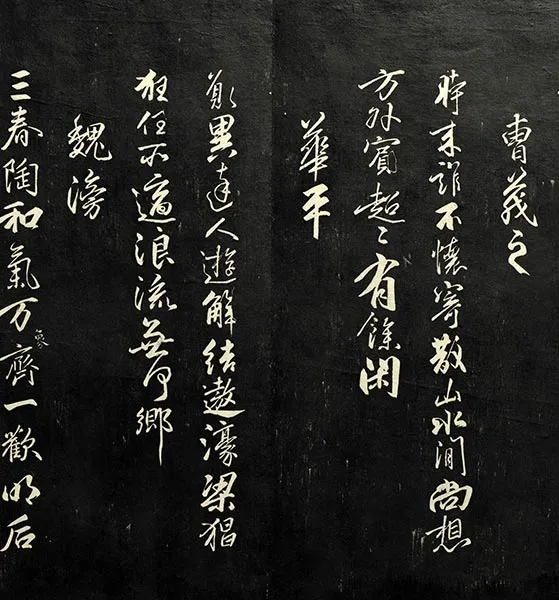 曹茂之
時来誰不懷寄散山水間尚想
方外賓超〻有餘閑
華平
願與達人遊解結遨濠梁猖
狂任所適浪流無何鄉
魏滂
三春陶和氣万齊一歡明后